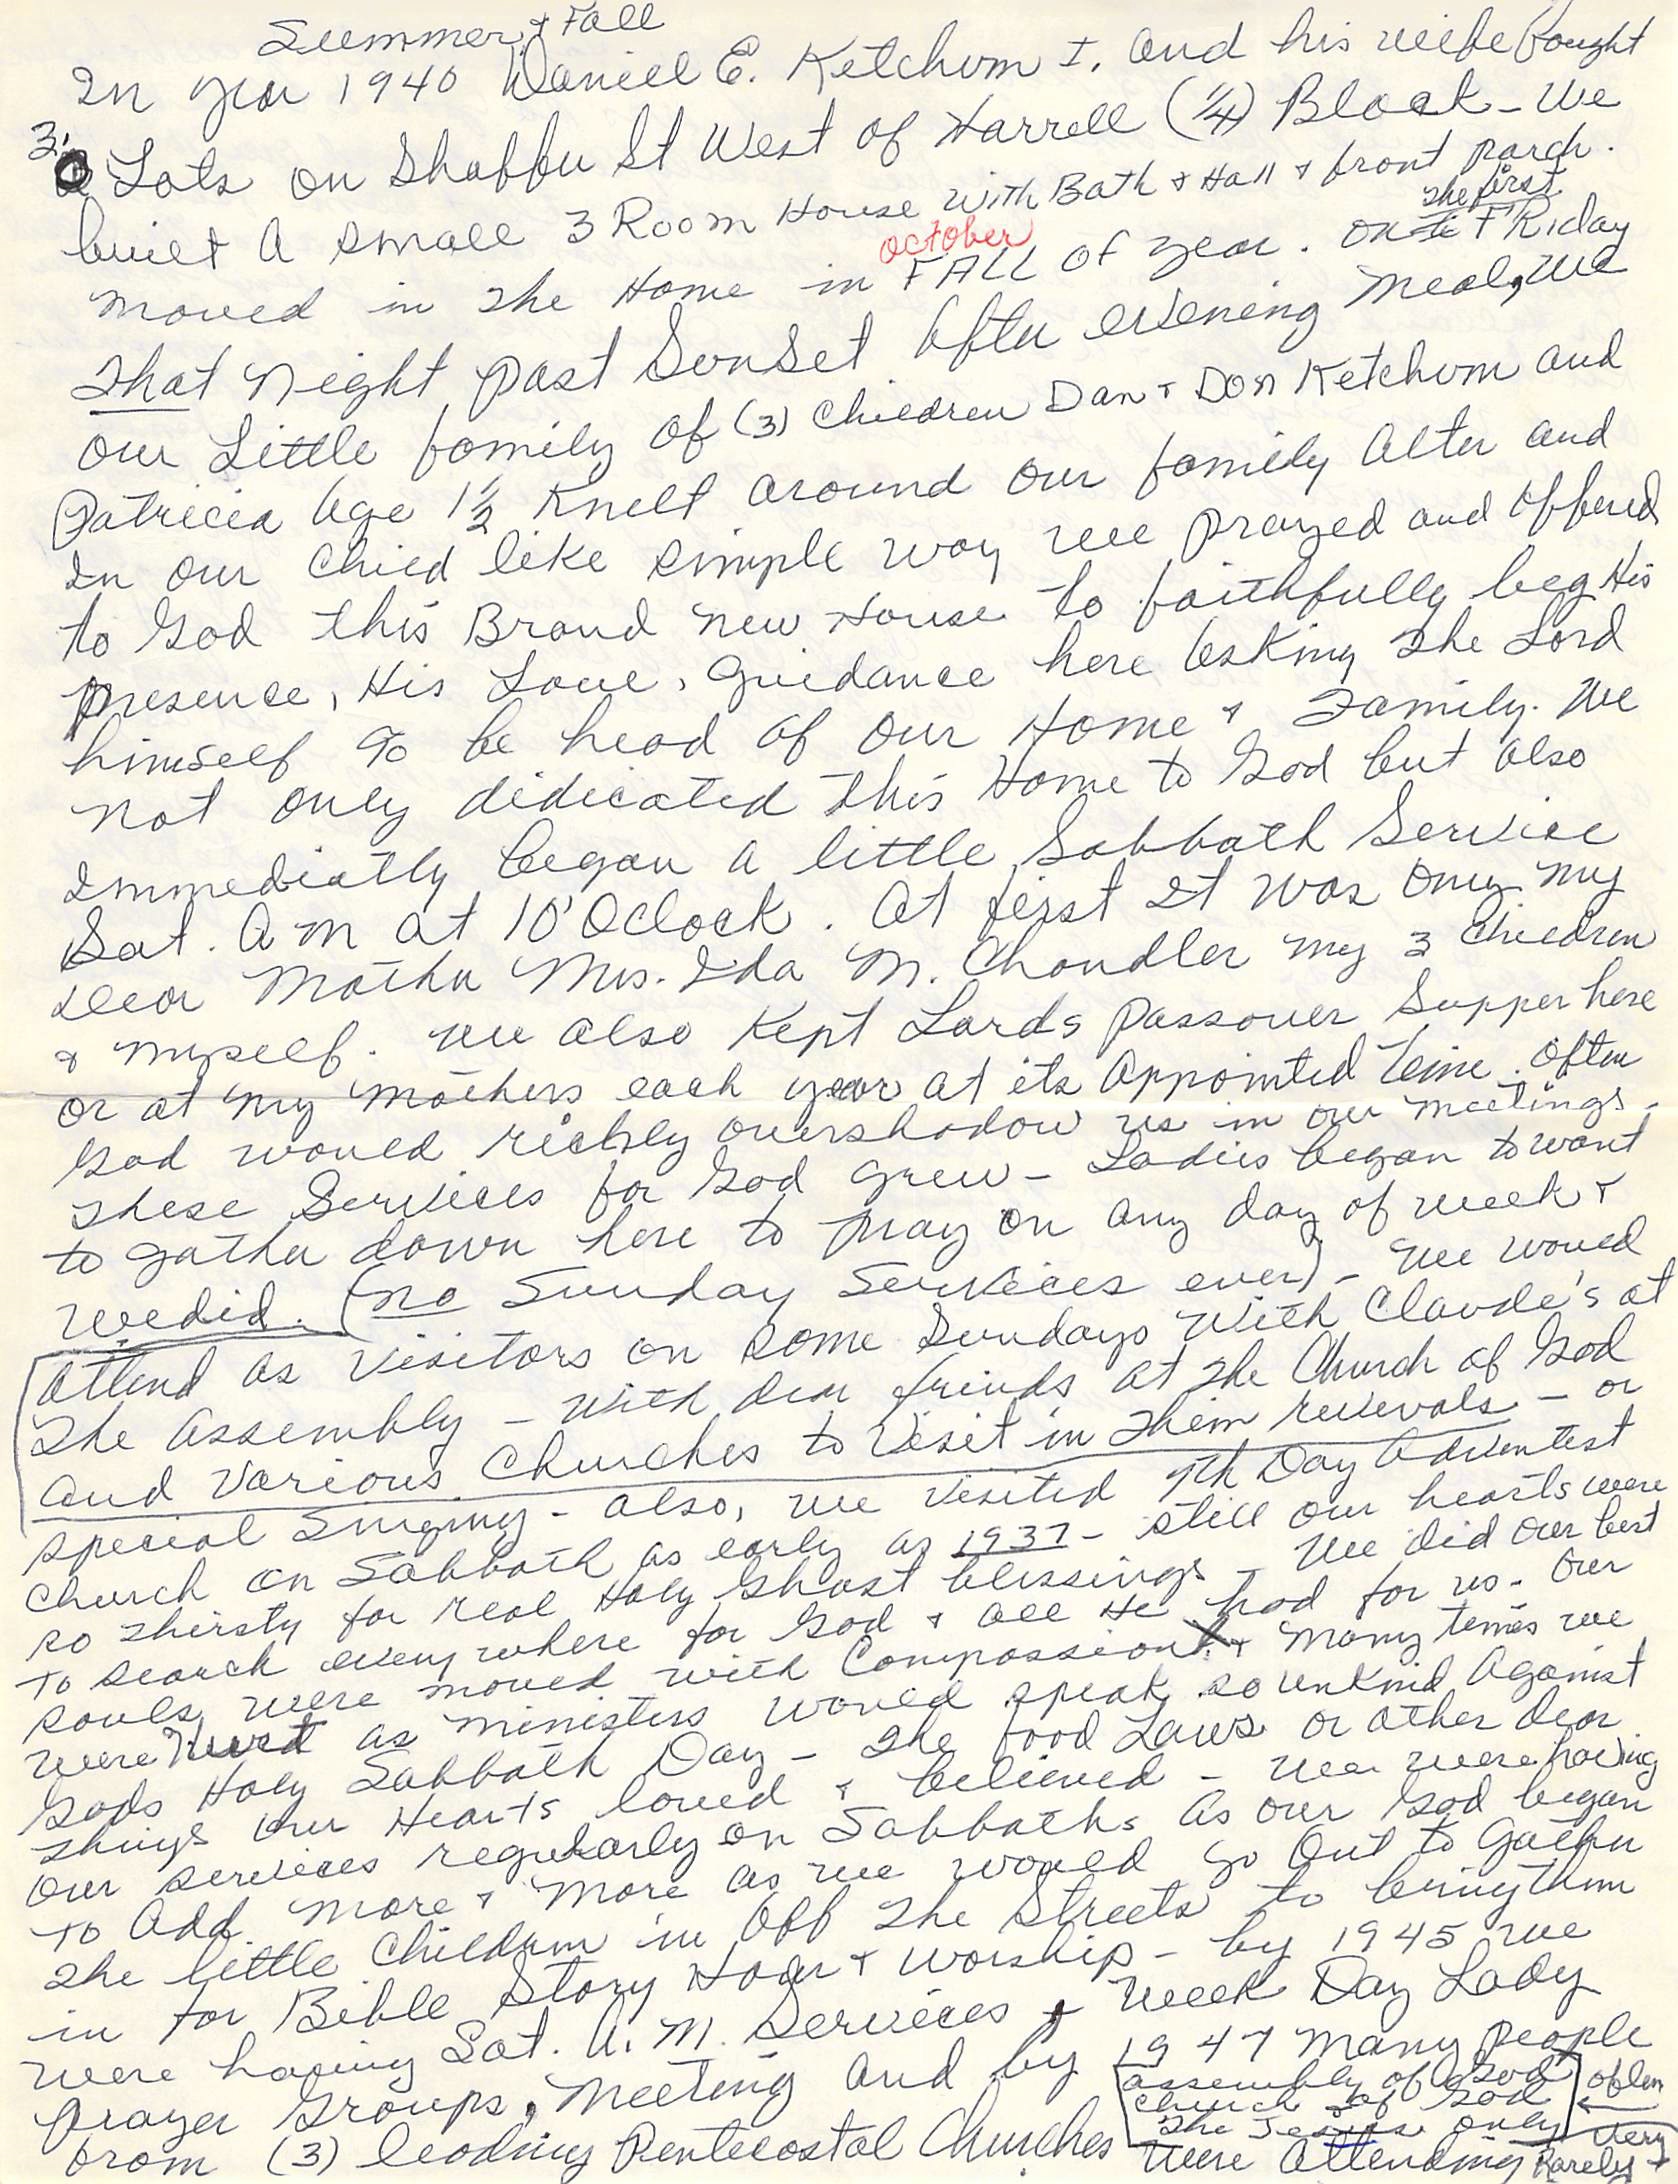 Summer & Fall
In year 1940 Daniel E. Ketchum I. and his wife bought
3. Lots on Shaffer St West of Harrell (1/4) Block - We
built a small 3 Room House with Bath & Hall & front porch.
moved in the Home in October FALL of year. On the first FRiday
That Night past SunSet after evening meal, we
our Little family of (3) Children Dan & Don Ketchum and
Patricia age 1 1/2 Knelt around our family Alter and
In our Child like simple way we prayed and offered
to God this Brand new House to faithfully beg His
presence, His Love, Guidance here asking the Lord
himself to be head of our Home & Family. We
not only didicated this Home to God but also
Immediatly began a little Sabbath Service
Sat. A m at 10'Oclock. At first It was only my
Dear Mother Mrs. Ida M. Chandler my 3 Children
& myself. We also Kept Lords Passover Supper here
or at my mothers each year at its Appointed time. Often
God would richly overshadow us in our meetings -
These Services for God grew - Ladies began to want
to gather down here to pray on any day of week &
we did. (no Sunday Services ever) - We would
attend as Visitors on some Sundays With Claude's at
The Assembly - With dear friends at the Church of God
and Various Churches to Visit in Them revivals - or
special Singing - also, we visited 7th Day Adventest
Church on Sabbath as early as 1937 - still our hearts were
so thirsty for real Holy Ghost blessings - We did our best
To search every where for God & all He had for us - Our
souls were moved with Compassion & Many times we
were Hurt as ministers would speak so unkind against
Gods Holy Sabbath Day - The food Laws or other dear
things our Hearts loved & believed - We were having
our services regularly on Sabbaths As our God began
To Add More & More as we would go Out to Gather
The little Children in Off The Streets to bring them
in for Bible Story Hour & Worship - by 1945 we
were having Sat. A.M. Services & Week Day Lady
Prayer Groups, Meeting and by 1947 Many People
from (3) leading Pentecostal Churches were Attending
Assembly of God
Church of God
The Jesus only
often
Very Rarely